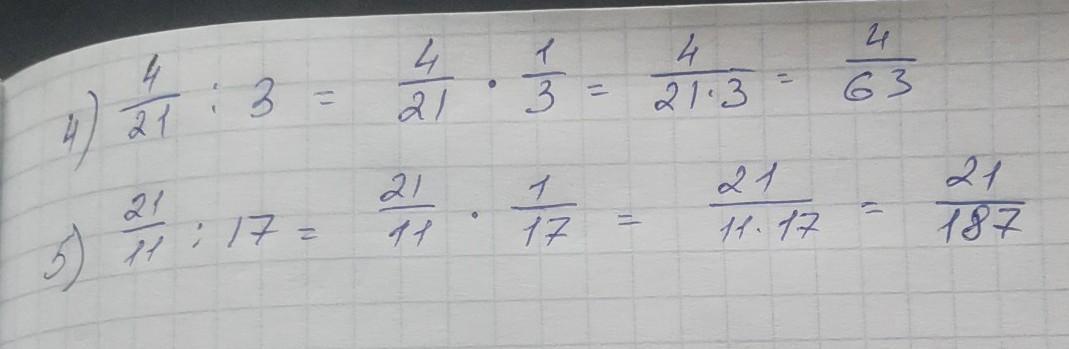 4) 4/21 : 3 = 4/21 · 1/3 = 4/21·3 = 4/63
5) 21/11 : 17 = 21/11 · 1/17 = 21/11·17 = 21/187